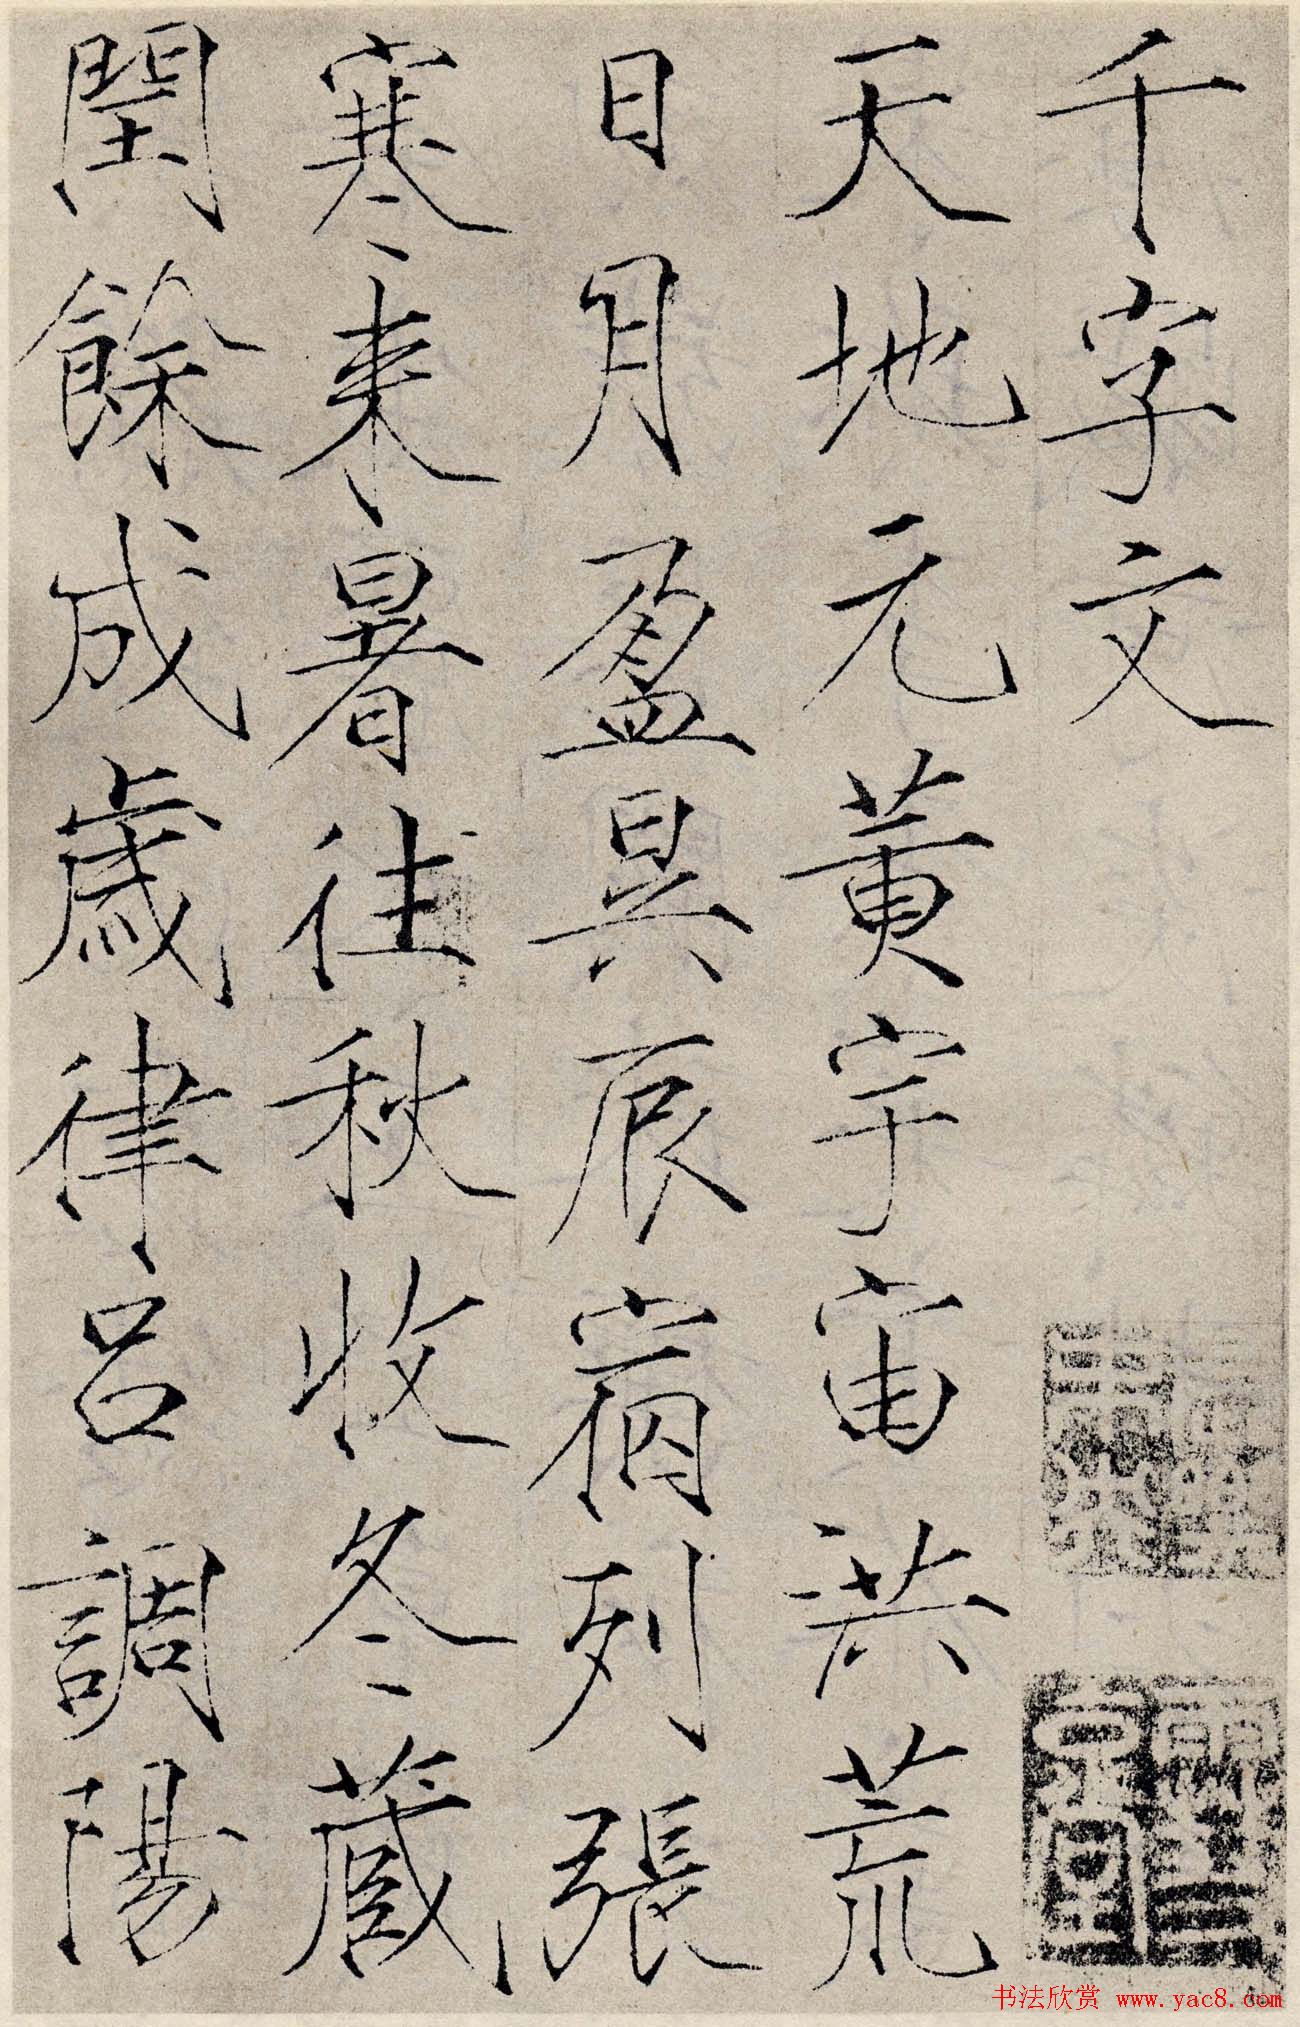 千字文
天地元黄宇宙洪荒
日月盈昃辰宿列張
寒来暑往秋收冬蔵
閏餘成歳律吕調陽
书法欣赏 www.yac8.com